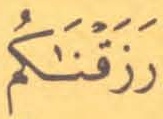 رَزَقْنَٰكُمْ